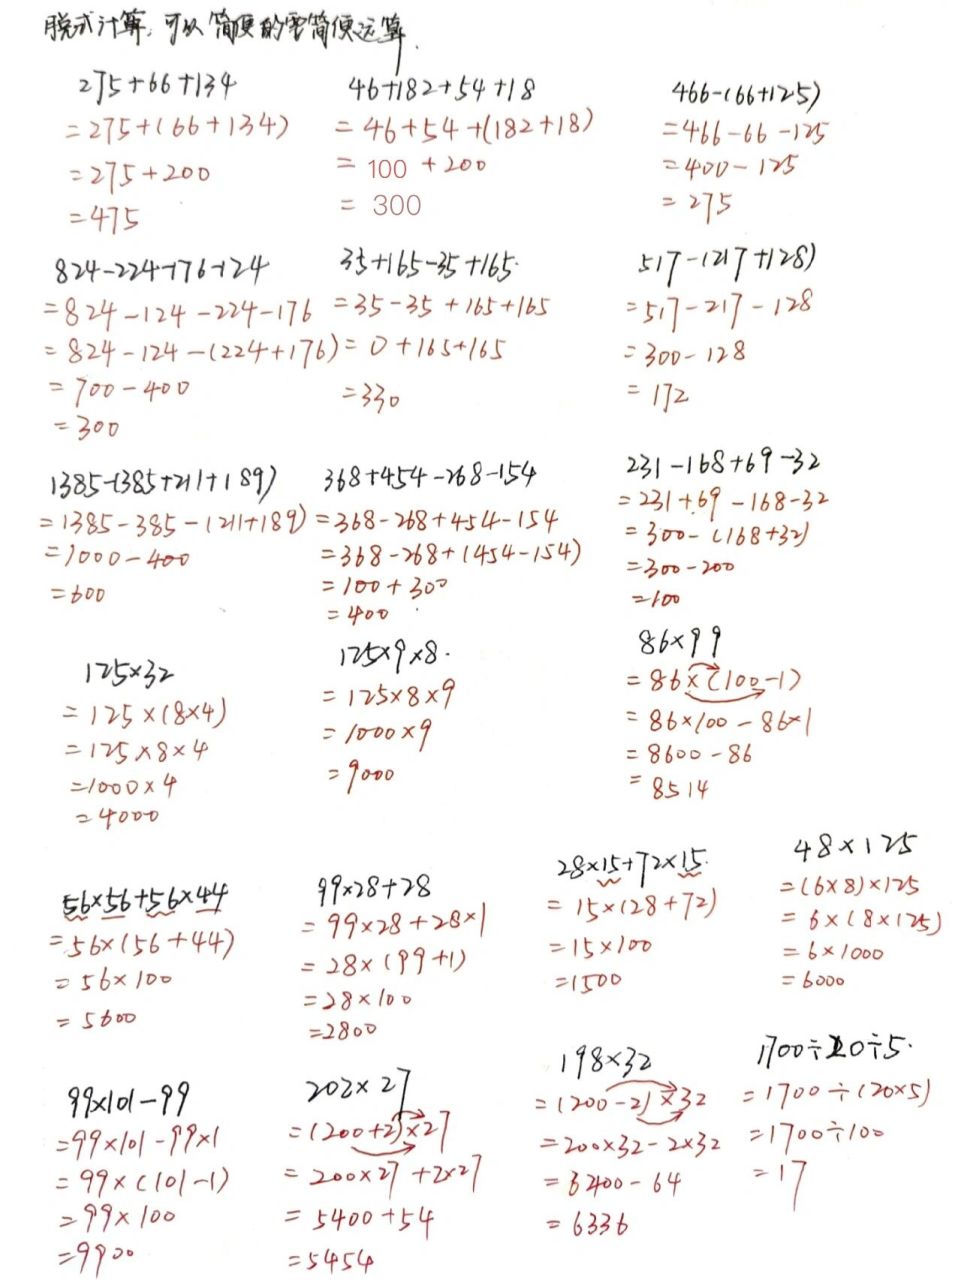 脱式计算,可以简便的要简便运算.
275+66+134
=275+(66+134)
=275+200
=475
46+182+54+18
=46+54+(182+18)
=100+200
=300
466-(66+125)
=466-66-125
=400-125
=275
824-224-176-124
=824-124-224-176
=824-124-(224+176)
=700-400
=300
35+165-35+165
=35-35+165+165
=0+165+165
=330
517-(217+128)
=517-217-128
=300-128
=172
1385-(385+211+189)
=1385-385-(211+189)
=1000-400
=600
368+454-268-154
=368-268+454-154
=368-268+(454-154)
=100+300
=400
231-168+69-32
=231+69-168-32
=300-(168+32)
=300-200
=100
125×32
=125×(8×4)
=125×8×4
=1000×4
=4000
125×9×8
=125×8×9
=1000×9
=9000
86×99
=86×(100-1)
=86×100-86×1
=8600-86
=8514
56×56+56×44
=56×(56+44)
=56×100
=5600
99×28+28
=99×28+28×1
=28×(99+1)
=28×100
=2800
28×15+72×15
=15×(28+72)
=15×100
=1500
48×125
=(6×8)×125
=6×(8×125)
=6×1000
=6000
99×101-99
=99×101-99×1
=99×(101-1)
=99×100
=9900
202×27
=(200+2)×27
=200×27+2×27
=5400+54
=5454
198×32
=(200-2)×32
=200×32-2×32
=6400-64
=6336
1700÷20÷5
=1700÷(20×5)
=1700÷100
=17